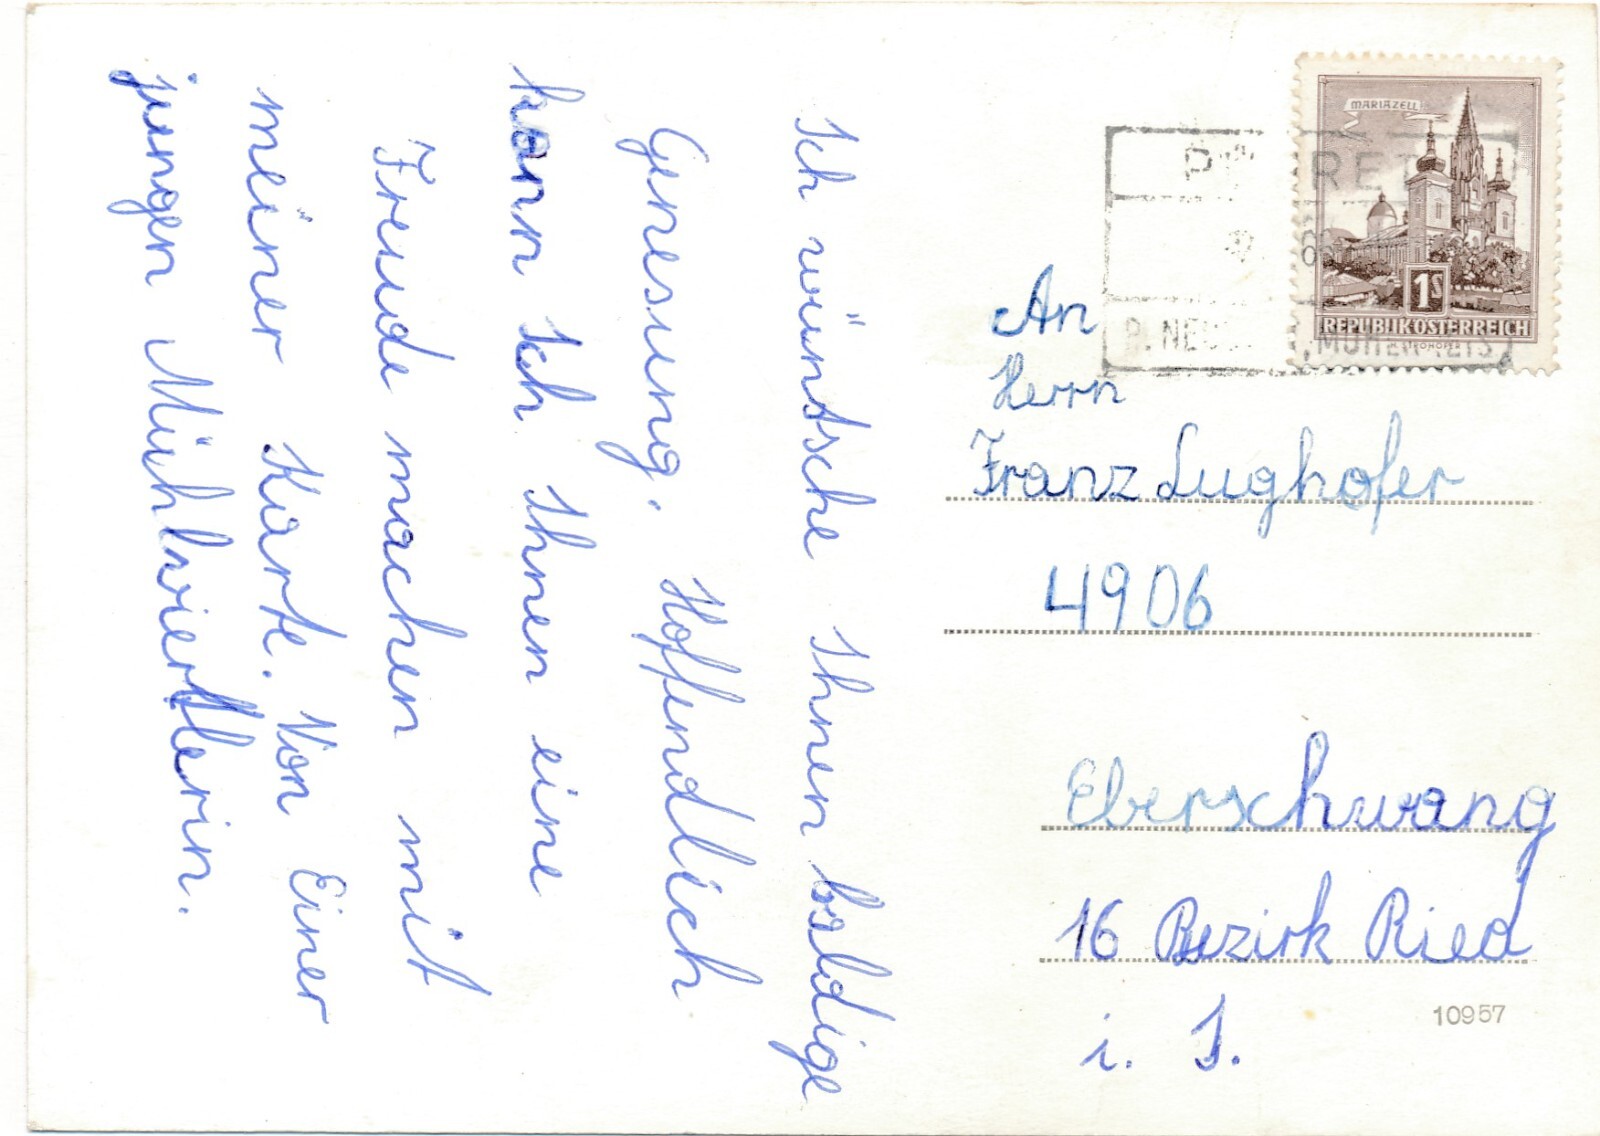 Ich wüntsche Ihnen baldige
Genesung. Hoffendlich
kann ich Ihnen eine
Freude machen mit
meiner Karte. Von Einer
jungen Mühlviertlerin.
MARIAZELL
1S
REPUBLIK ÖSTERREICH
H. STROHOFER
An
Herrn
Franz Lughofer
4906
Eberschwang
16 Bezirk Ried
i. I.
10957